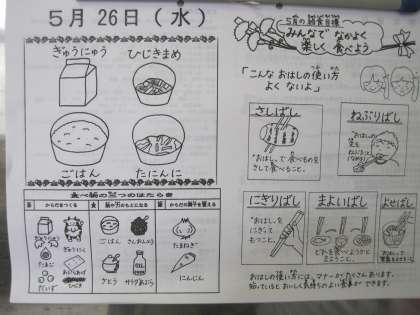 5月 26日 (水)
ぎゅうにゅう
ひじきまめ
ごはん
たにんに
食べ物の三つのはたらき
からだをつくる
熱や力のもとになる
からだの調子を整える
ぎゅうにゅう
ぎゅうにく
たまご
あぶらあげ
だいず
ひじき
ごはん
さとう
サラダあぶら
たまねぎ
にんじん
5月の給食目標
みんなで なかよく
楽しく 食べよう
「こんな おはしの使い方
よく ないよ」
さしばし
「おはし」で食べものを
さして食べること。
ねぶりばし
おはしの
先を
ねぶること
にぎりばし
"おはし"を
にぎって
もつこと。
まよいばし
どれを食べようかと
まようこと。
よせばし
おはしの使い方には、マナーがたくさんあります。
知っていると おいしく気持ちのよい食事が できます。